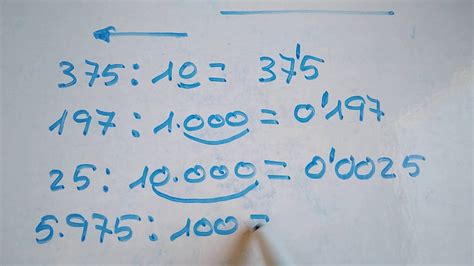 375 : 10 = 37'5
197 : 1.000 = 0'197
25 : 10.000 = 0'0025
5.975 : 100 =